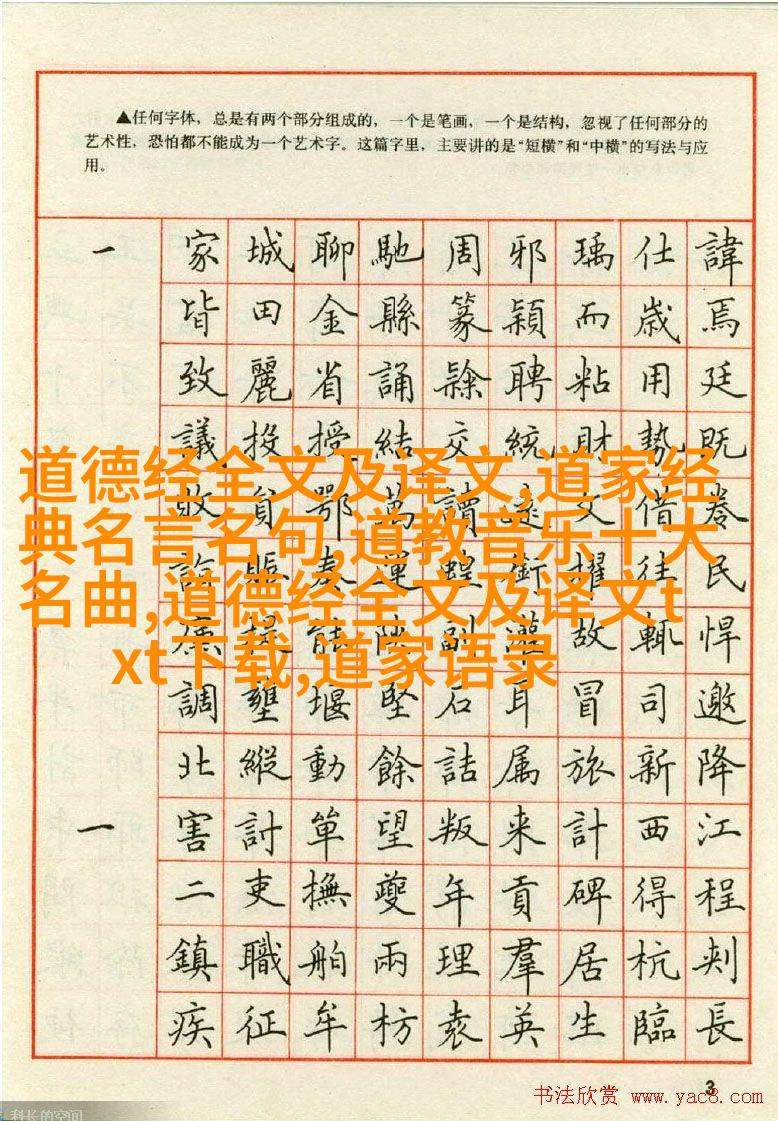 ▲任何字体，总是有两个部分组成的，一个是笔画，一个是结构，忽视了任何部分的
艺术性，恐怕都不能成为一个艺术字。这篇字里，主要讲的是“短横”和“中横”的写法与应
用。
一 家 城 聊 馳 周 邪 瑀 仕 諱
皆 田 金 縣 篆 穎 而 歲 焉
致 麗 省 誦 隸 聘 粘 用 廷
議 投 授 結 交 統 財 勢 既
道德经全文及译文,道家经
典名言名句,道教音乐十大
名曲,道德经全文及译文t
xt下载,道家语录
敗 貧 鄂 萬 讀 文 借 眷
奏 運 蝗 銜 擢 往 民
能 陝 副 故 輒 悍
調 壅 堰 堅 石 耳 冒 司 邀
北 縱 動 餘 詰 属 旅 新 降
一 害 討 単 望 叛 来 計 西 江
二 吏 撫 夔 年 貢 碑 得 程
鎮 職 舶 兩 理 羣 居 杭 刺
疾 征 牟 枋 袁 英 生 臨 長
3
书法欣赏 www.yac8.com
科长的空间